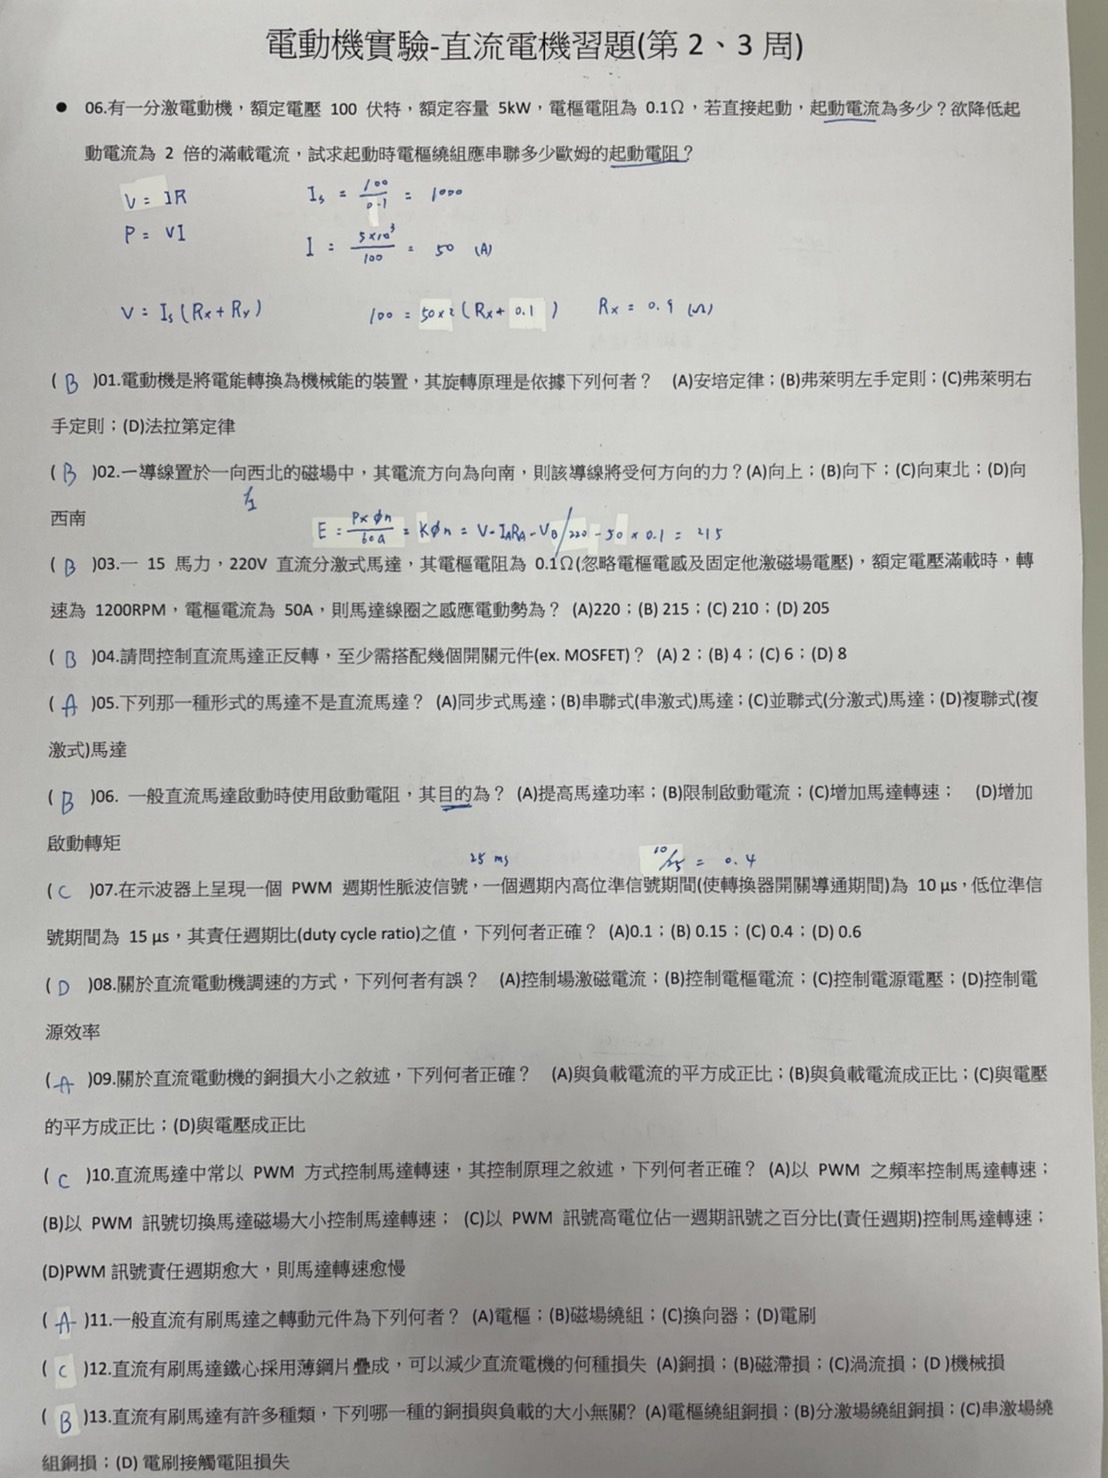 電動機實驗-直流電機習題(第 2、3 周)
● 06.有一分激電動機，額定電壓 100 伏特，額定容量 5kW，電樞電阻為 0.1Ω，若直接起動，起動電流為多少？欲降低起
動電流為 2 倍的滿載電流，試求起動時電樞繞組應串聯多少歐姆的起動電阻？
V = IR   Is = 100/0.1 = 1000
P = VI   I = 5×10³/100 = 50 (A)
V = Is (Rx + Ry)   100 = 50×2 (Rx + 0.1)   Rx = 0.9 (Ω)
( B )01.電動機是將電能轉換為機械能的裝置，其旋轉原理是依據下列何者？ (A)安培定律；(B)弗萊明左手定則；(C)弗萊明右
手定則；(D)法拉第定律
( B )02.一導線置於一向西北的磁場中，其電流方向為向南，則該導線將受何方向的力？(A)向上；(B)向下；(C)向東北；(D)向
西南
E = P×Φn/60a = KΦn = V - IARA - VB / 220 - 50 × 0.1 = 215
( B )03.一 15 馬力，220V 直流分激式馬達，其電樞電阻為 0.1Ω(忽略電樞電感及固定他激磁場電壓)，額定電壓滿載時，轉
速為 1200RPM，電樞電流為 50A，則馬達線圈之感應電動勢為？ (A)220；(B) 215；(C) 210；(D) 205
( B )04.請問控制直流馬達正反轉，至少需搭配幾個開關元件(ex. MOSFET)？ (A) 2；(B) 4；(C) 6；(D) 8
( A )05.下列那一種形式的馬達不是直流馬達？ (A)同步式馬達；(B)串聯式(串激式)馬達；(C)並聯式(分激式)馬達；(D)複聯式(複
激式)馬達
( B )06. 一般直流馬達啟動時使用啟動電阻，其目的為？ (A)提高馬達功率；(B)限制啟動電流；(C)增加馬達轉速； (D)增加
啟動轉矩
25 ms   10/25 = 0.4
( C )07.在示波器上呈現一個 PWM 週期性脈波信號，一個週期內高位準信號期間(使轉換器開關導通期間)為 10 μs，低位準信
號期間為 15 μs，其責任週期比(duty cycle ratio)之值，下列何者正確？ (A)0.1；(B) 0.15；(C) 0.4；(D) 0.6
( D )08.關於直流電動機調速的方式，下列何者有誤？ (A)控制場激磁電流；(B)控制電樞電流；(C)控制電源電壓；(D)控制電
源效率
( A )09.關於直流電動機的銅損大小之敘述，下列何者正確？ (A)與負載電流的平方成正比；(B)與負載電流成正比；(C)與電壓
的平方成正比；(D)與電壓成正比
( C )10.直流馬達中常以 PWM 方式控制馬達轉速，其控制原理之敘述，下列何者正確？ (A)以 PWM 之頻率控制馬達轉速；
(B)以 PWM 訊號切換馬達磁場大小控制馬達轉速； (C)以 PWM 訊號高電位佔一週期訊號之百分比(責任週期)控制馬達轉速；
(D)PWM 訊號責任週期愈大，則馬達轉速愈慢
( A )11.一般直流有刷馬達之轉動元件為下列何者？ (A)電樞；(B)磁場繞組；(C)換向器；(D)電刷
( C )12.直流有刷馬達鐵心採用薄鋼片疊成，可以減少直流電機的何種損失 (A)銅損；(B)磁滯損；(C)渦流損；(D )機械損
( B )13.直流有刷馬達有許多種類，下列哪一種的銅損與負載的大小無關? (A)電樞繞組銅損；(B)分激場繞組銅損；(C)串激場繞
組銅損；(D) 電刷接觸電阻損失